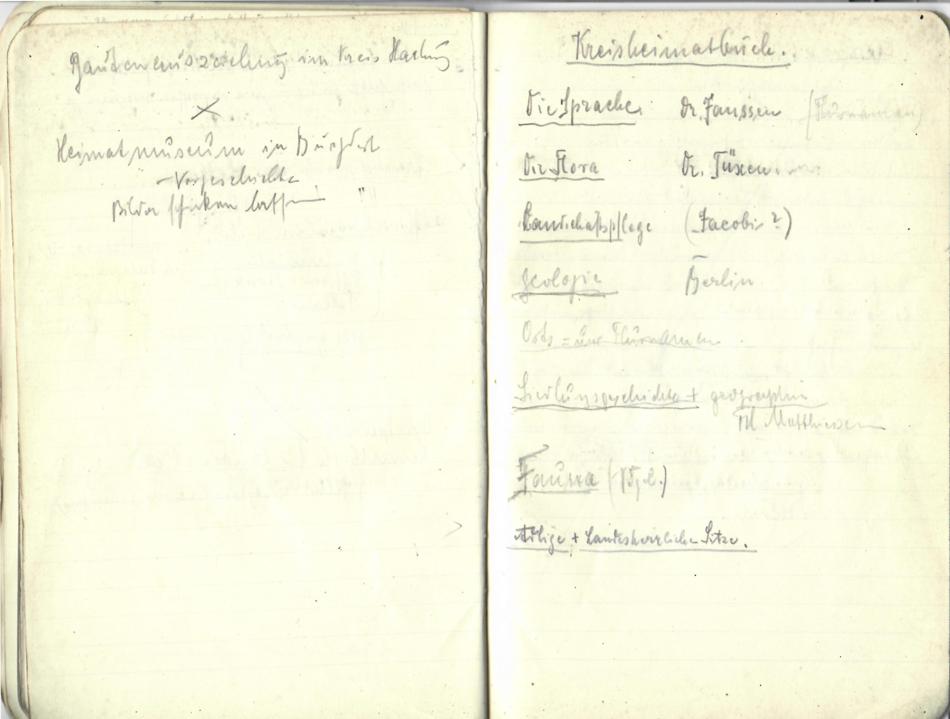 im Kreis Harburg
×
Heimatmuseum in Burgdorf
– Vorgeschichte
Bilder schicken lassen "
Kreisheimatbuch.
Die Sprache: Dr. Janssen (Flurnamen)
Die Flora Dr. Tüxen
Landschaftspflege (Jacobi?)
Geologie Berlin
Orts= und Flurnamen
Siedlungsgeschichte + geographie
Matthiesen
Fauna
Adlige + Landesherrliche Sitze.